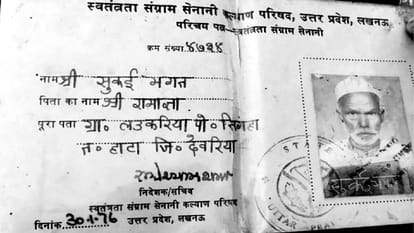 स्वतंत्रता संग्राम सेनानी कल्याण परिषद, उत्तर प्रदेश, लखनऊ
परिचय पत्र-स्वतंत्रता संग्राम सेनानी
क्रम संख्या ४७२४
नाम श्री सुकई भगत
पिता का नाम श्री रामाज्ञा
पूरा पता ग्रा॰ लउकरिया पो॰ सिंगहा
त॰ हाटा जि॰ देवरिया
निदेशक/सचिव
स्वतंत्रता संग्राम सेनानी कल्याण परिषद
दिनांक 30-1-76 उत्तर प्रदेश, लखनऊ
STATE
UTTAR PRA